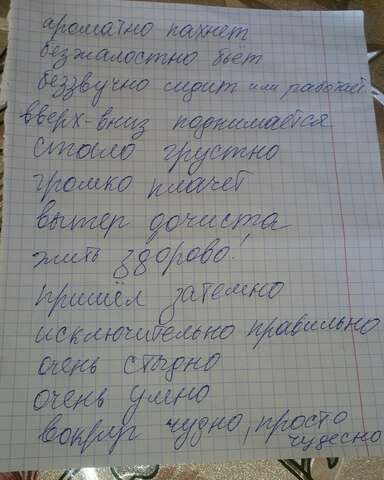 ароматно пахнет
безжалостно бьёт
беззвучно сидит или работает
вверх-вниз поднимается
стало грустно
громко плачет
вытер дочиста
жить здорово!
пришёл затемно
исключительно правильно
очень стыдно
очень умно
вокруг чудно, просто
чудесно